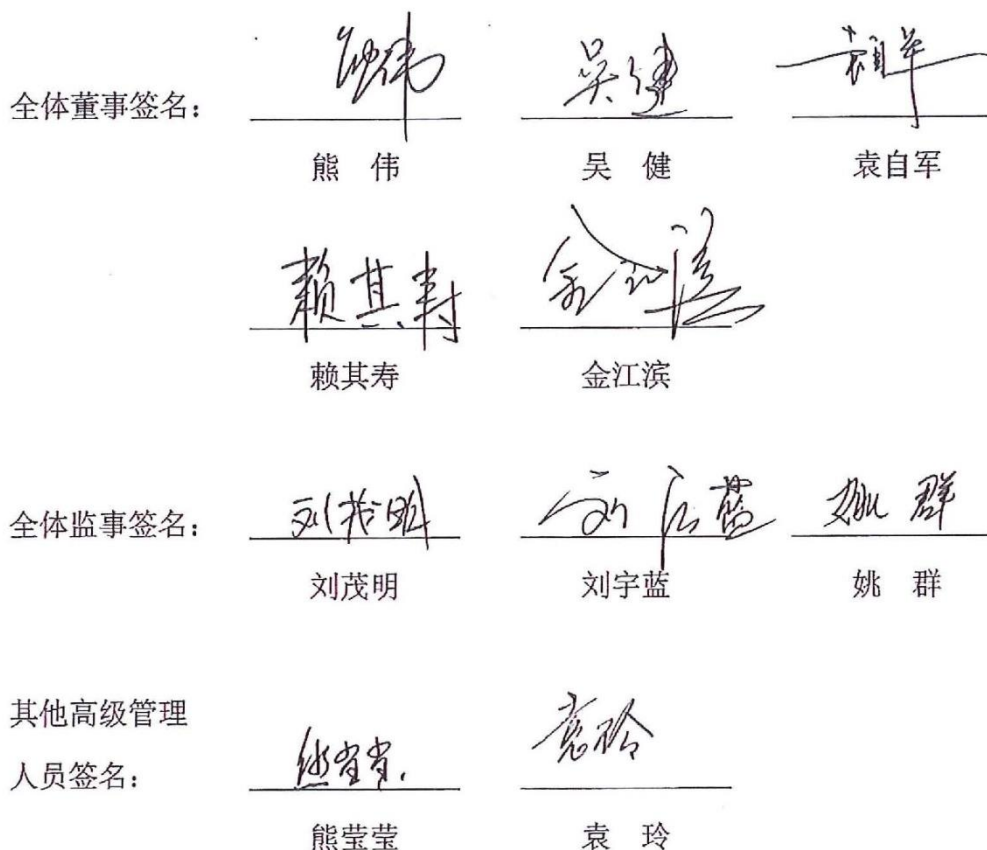 熊伟 吴健 袁自军
全体董事签名：
熊 伟 吴 健 袁自军
赖其寿 金江滨
赖其寿 金江滨
全体监事签名： 刘茂明 刘宇蓝 姚群
刘茂明 刘宇蓝 姚 群
其他高级管理
人员签名： 熊莹莹 袁玲
熊莹莹 袁 玲